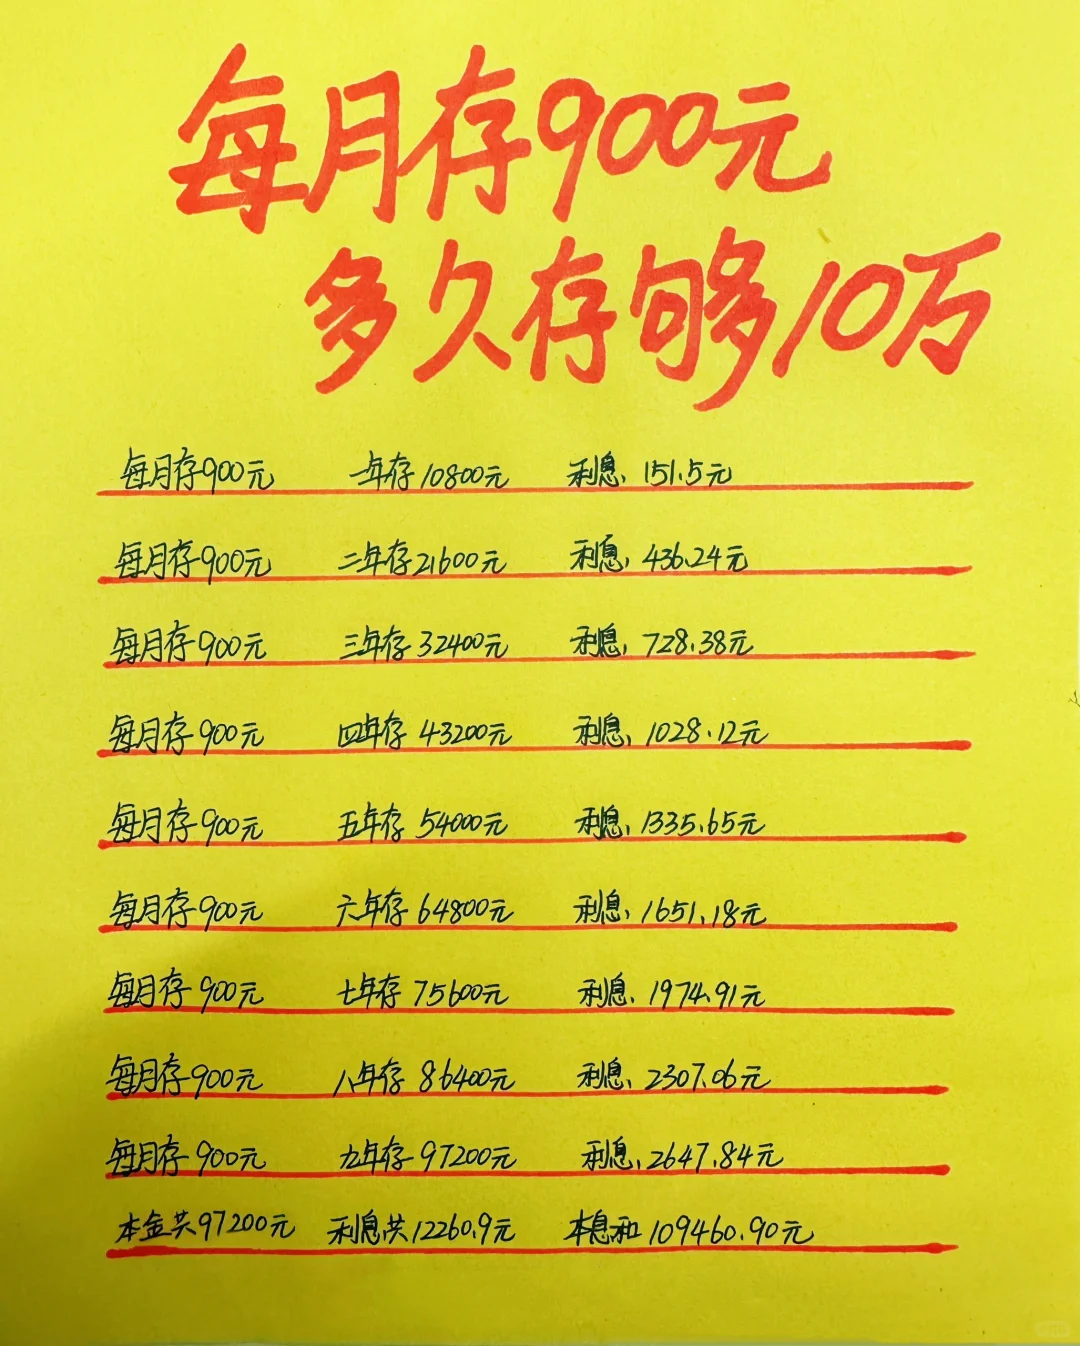 每月存900元
多久存够10万
每月存900元 一年存10800元 利息:151.5元
每月存900元 二年存21600元 利息:436.24元
每月存900元 三年存32400元 利息:728.38元
每月存900元 四年存43200元 利息:1028.12元
每月存900元 五年存54000元 利息:1335.65元
每月存900元 六年存64800元 利息:1651.18元
每月存900元 七年存75600元 利息:1974.91元
每月存900元 八年存86400元 利息:2307.06元
每月存900元 九年存97200元 利息:2647.84元
本金共97200元 利息共12260.9元 本息和109460.90元